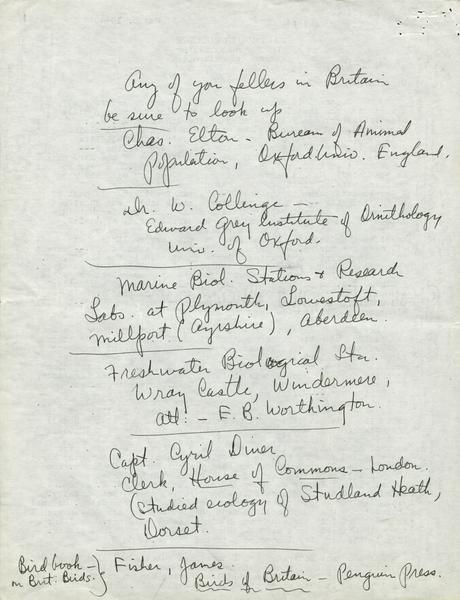 Any of you fellers in Britain
be sure to look up
Chas. Elton - Bureau of Animal
Population, Oxford Univ. England.
Dr. W. Collinge -
Edward Grey Institute of Ornithology
Univ. of Oxford.
Marine Biol. Stations & Research
Labs. at Plymouth, Lowestoft,
Millport (Ayrshire), Aberdeen.
Freshwater Biological Sta.
Wray Castle, Windermere,
Att: - E. B. Worthington.
Capt. Cyril Diver
Clerk, House of Commons - London.
(studied ecology of Studland Heath,
Dorset.
Bird book -
on Brit. Birds.
Fisher, James.
Birds of Britain - Penguin Press.